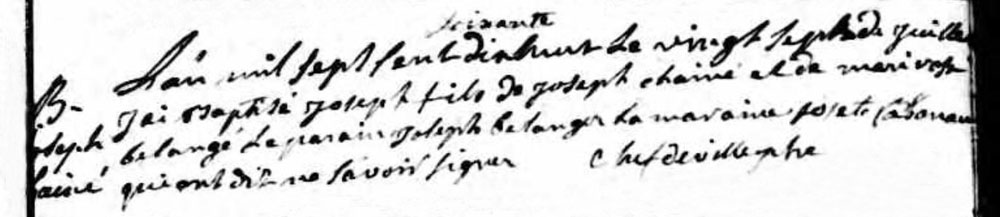 soixante
L'an mil sept cent dixhuit le vingt sept de juille
B- j'ai Baptisé joseph fils de joseph chainé et de marirose
joseph belangé Le parain joseph belanger La maraine josete
chainé qui ont dit ne savoir signer chefdeville ptre